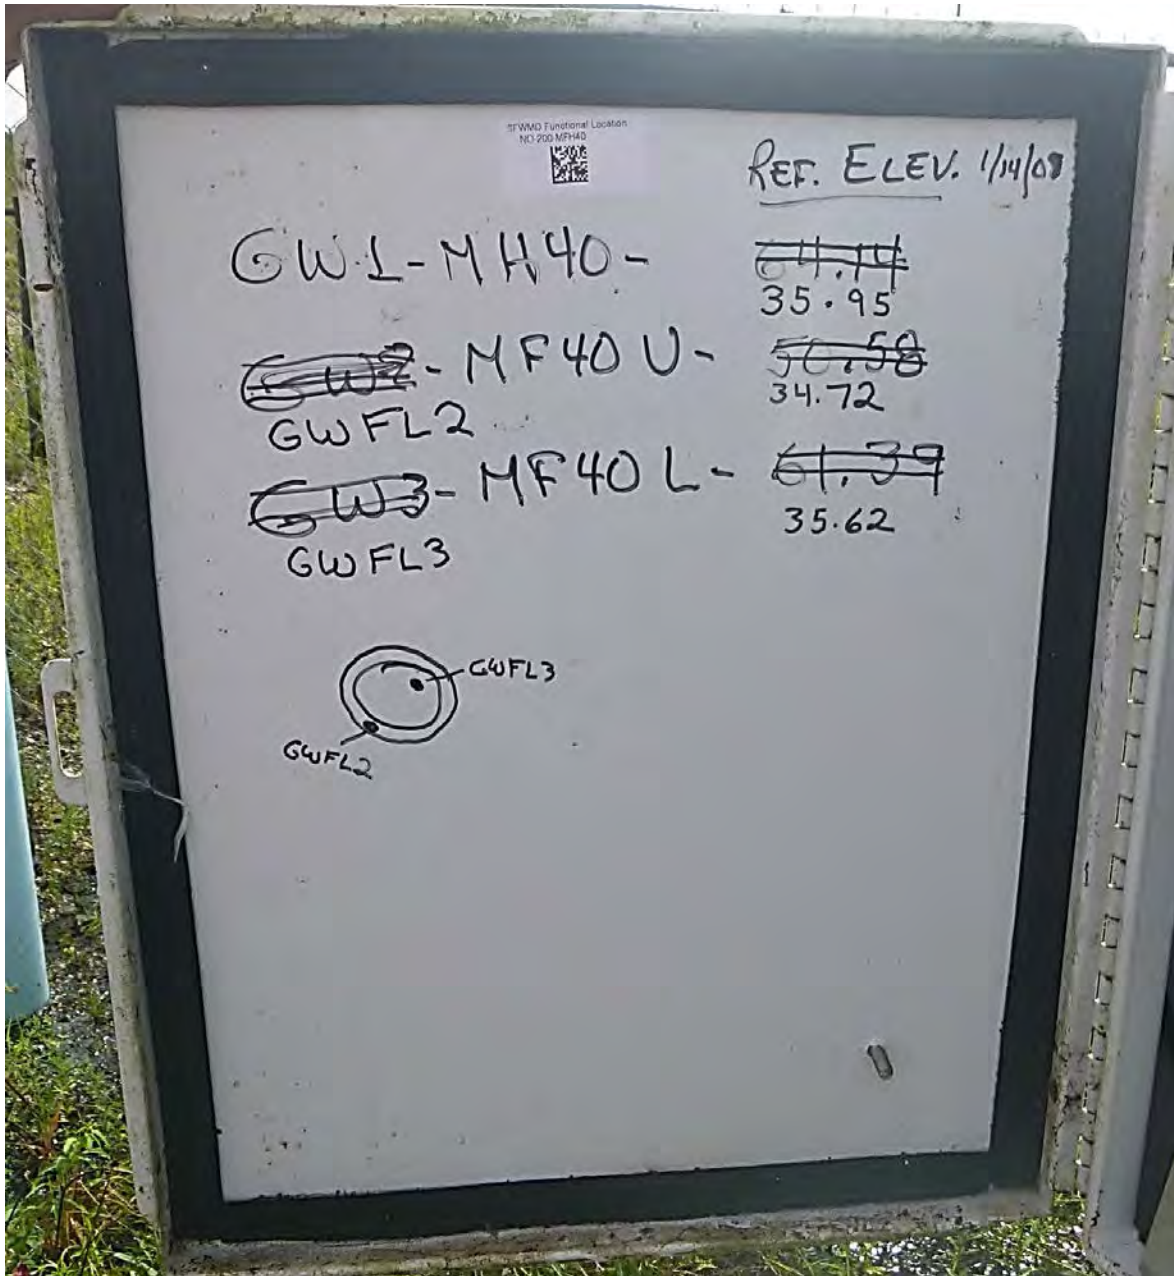 SFWMD Functional Location
NO-200-MFH40
REF. ELEV. 1/14/08
GW1-MH40-
35.95
GW2-MF40U- 50.58
GWFL2 34.72
GW3-MF40L- 61.39
GWFL3 35.62
GWFL3
GWFL2